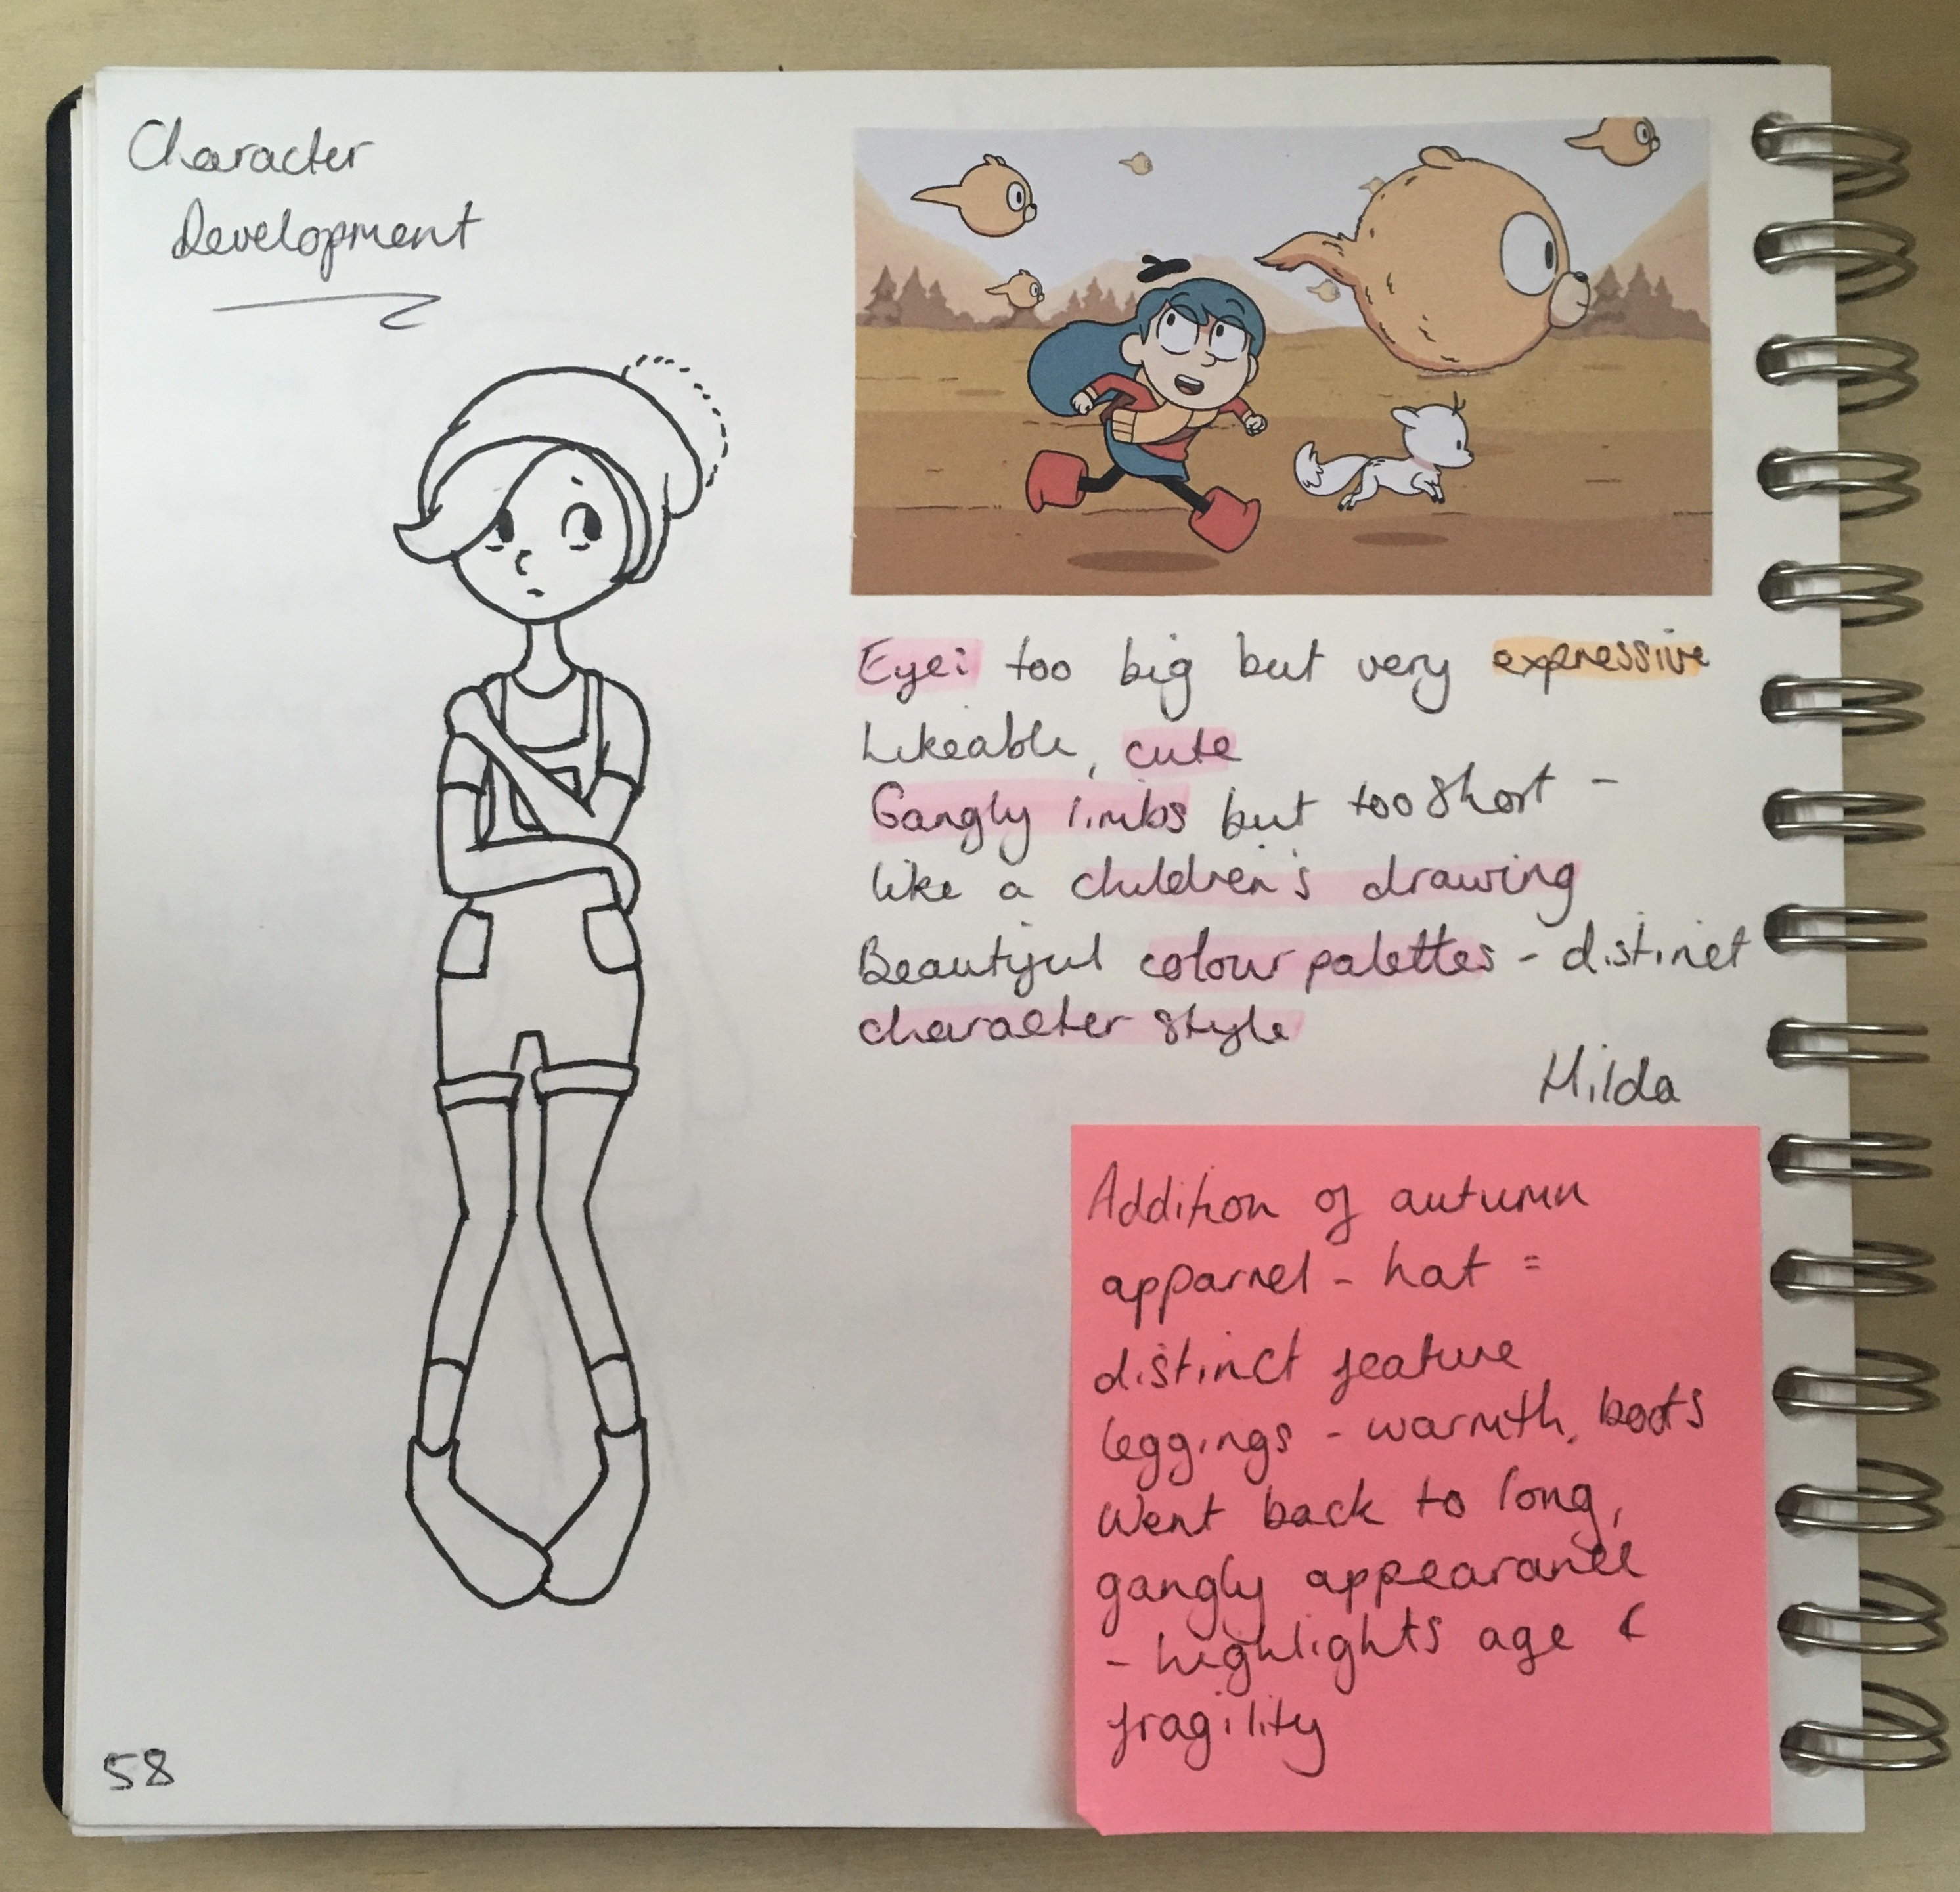 Character
Development
Eye: too big but very expressive
Likeable, cute
Gangly limbs but too short -
like a children's drawing
Beautiful colour palettes - distinct
character style
Hilda
Addition of autumn
apparrel - hat =
distinct feature
leggings - warmth, boots
Went back to long,
gangly appearance
- highlights age &
fragility
58